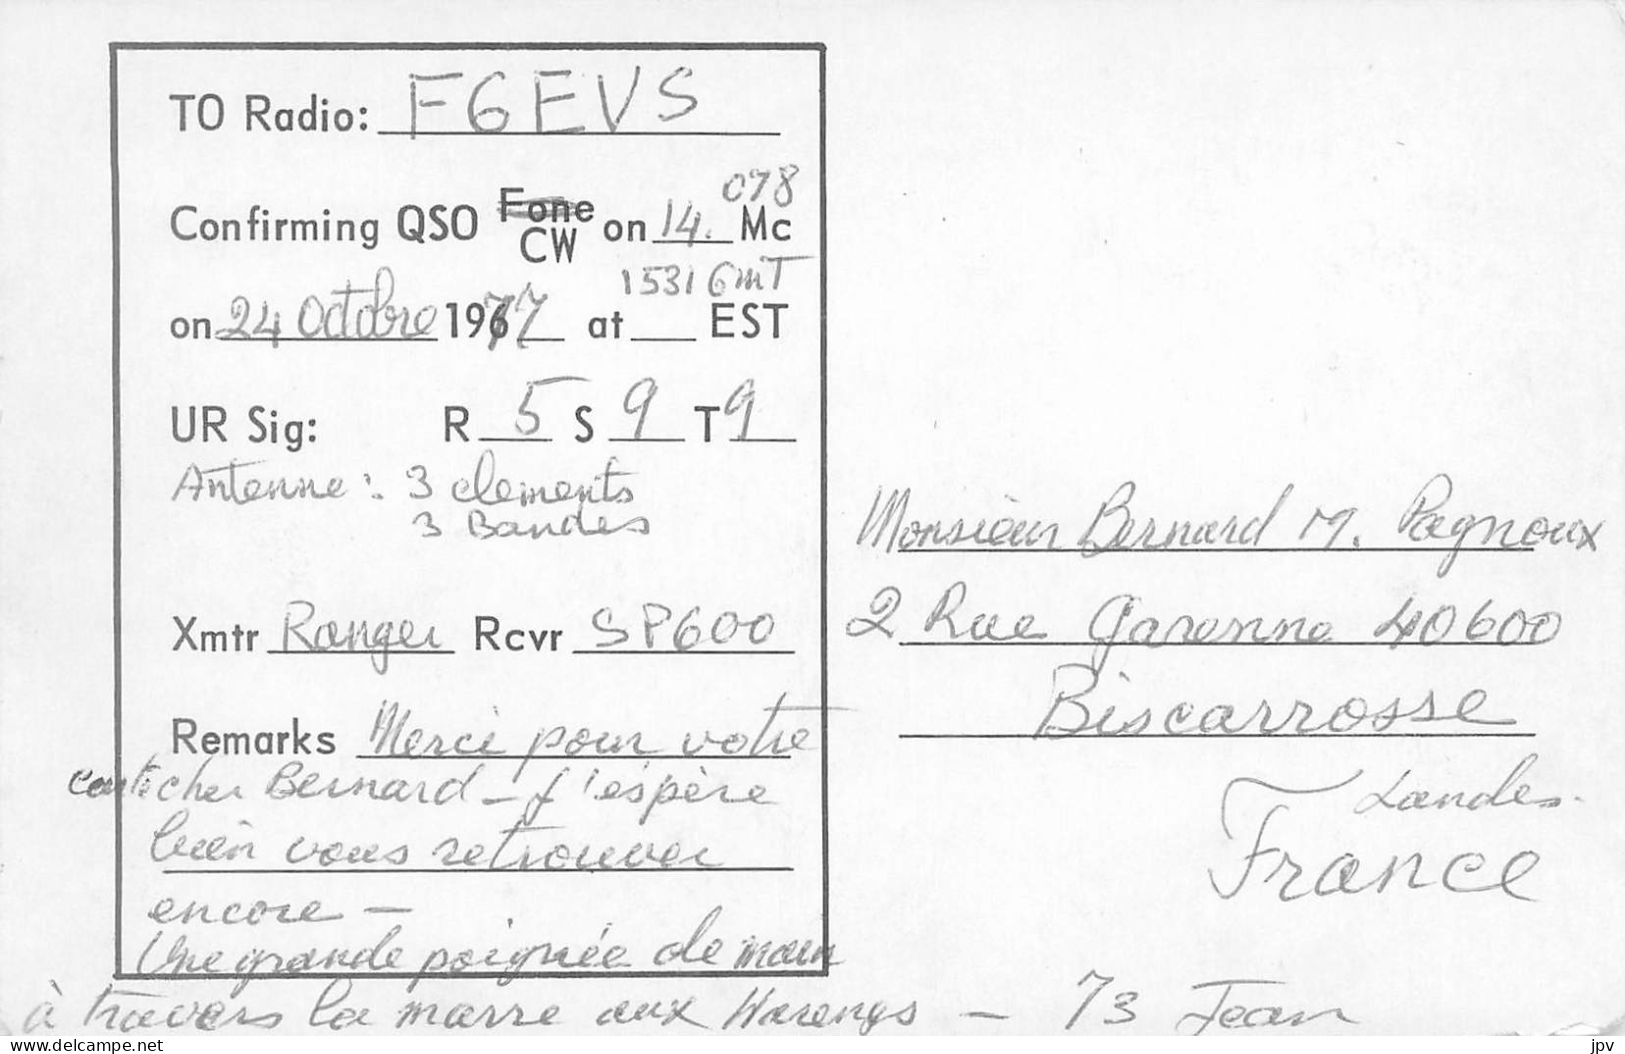 TO Radio: F6EVS
078
Confirming QSO Fone CW on 14. Mc
1531 GmT
on 24 Octobre 1967 77 at EST
UR Sig: R 5 S 9 T 9
Antenne : 3 elements
3 Bandes
Xmtr Ranger Rcvr SP600
Remarks Merci pour votre
carte cher Bernard - J'espère
bien vous retrouver
encore -
Une grande poignée de main
à travers la marre aux Harengs - 73 Jean
Monsieur Bernard M. Pagnoux
2 Rue Garenne 40600
Biscarrosse
Landes.
France
delcampe.net
jpv